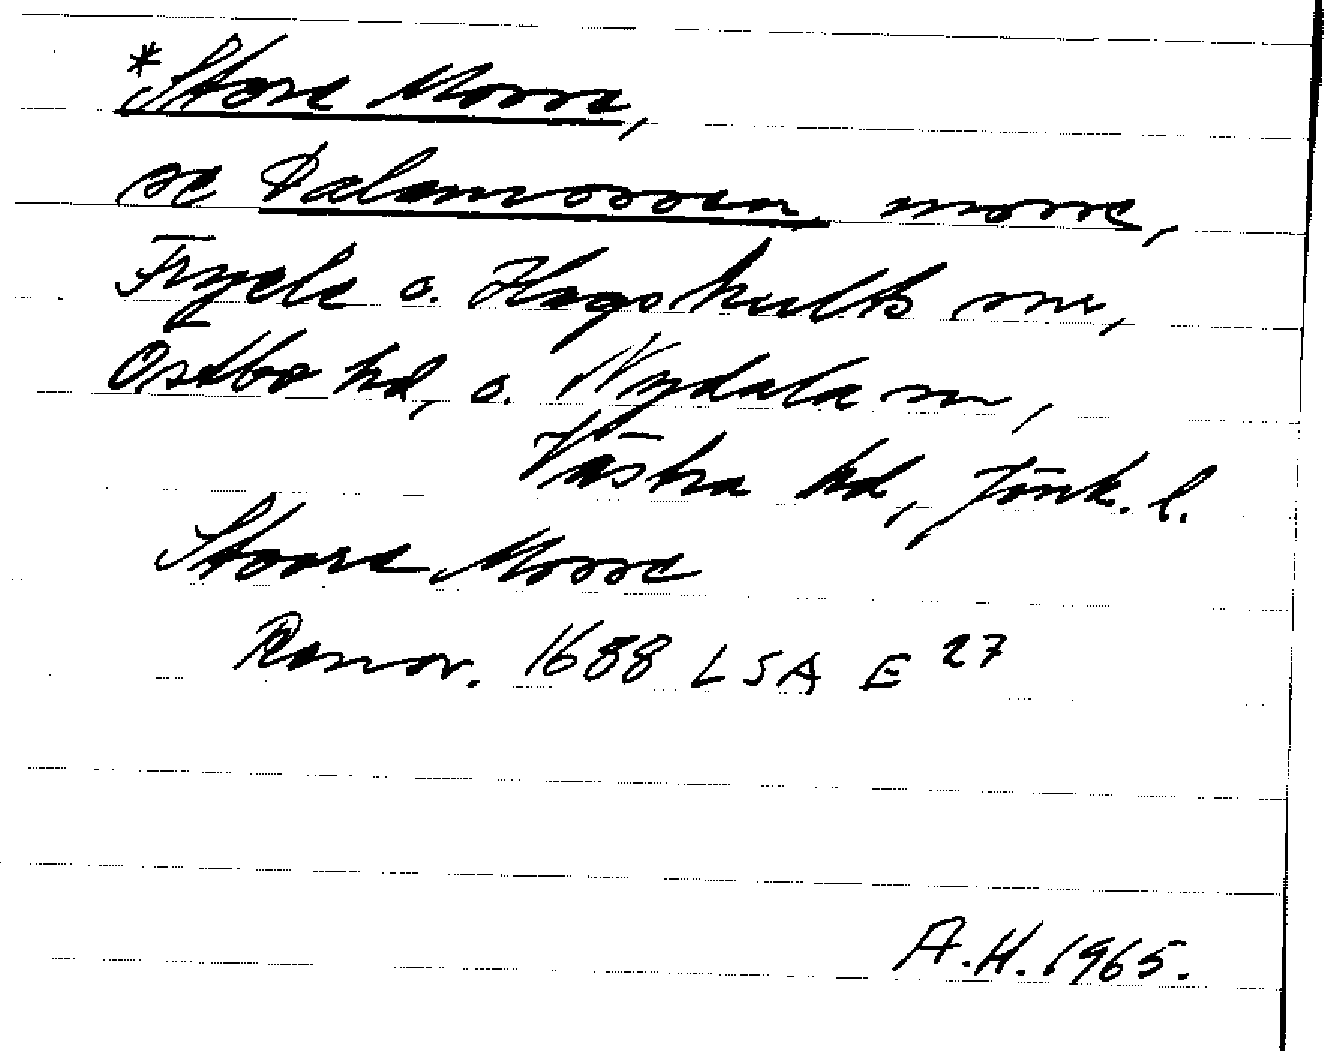 *Store Mosse,
se Dalamossen, mosse,
Fryele o. Hagshults snr,
Östbo hd, o. Nydala sn,
Västra hd, Jönk. l.
Stoore Mosse
Ransr. 1688 LSA E 27
A.H. 1965.